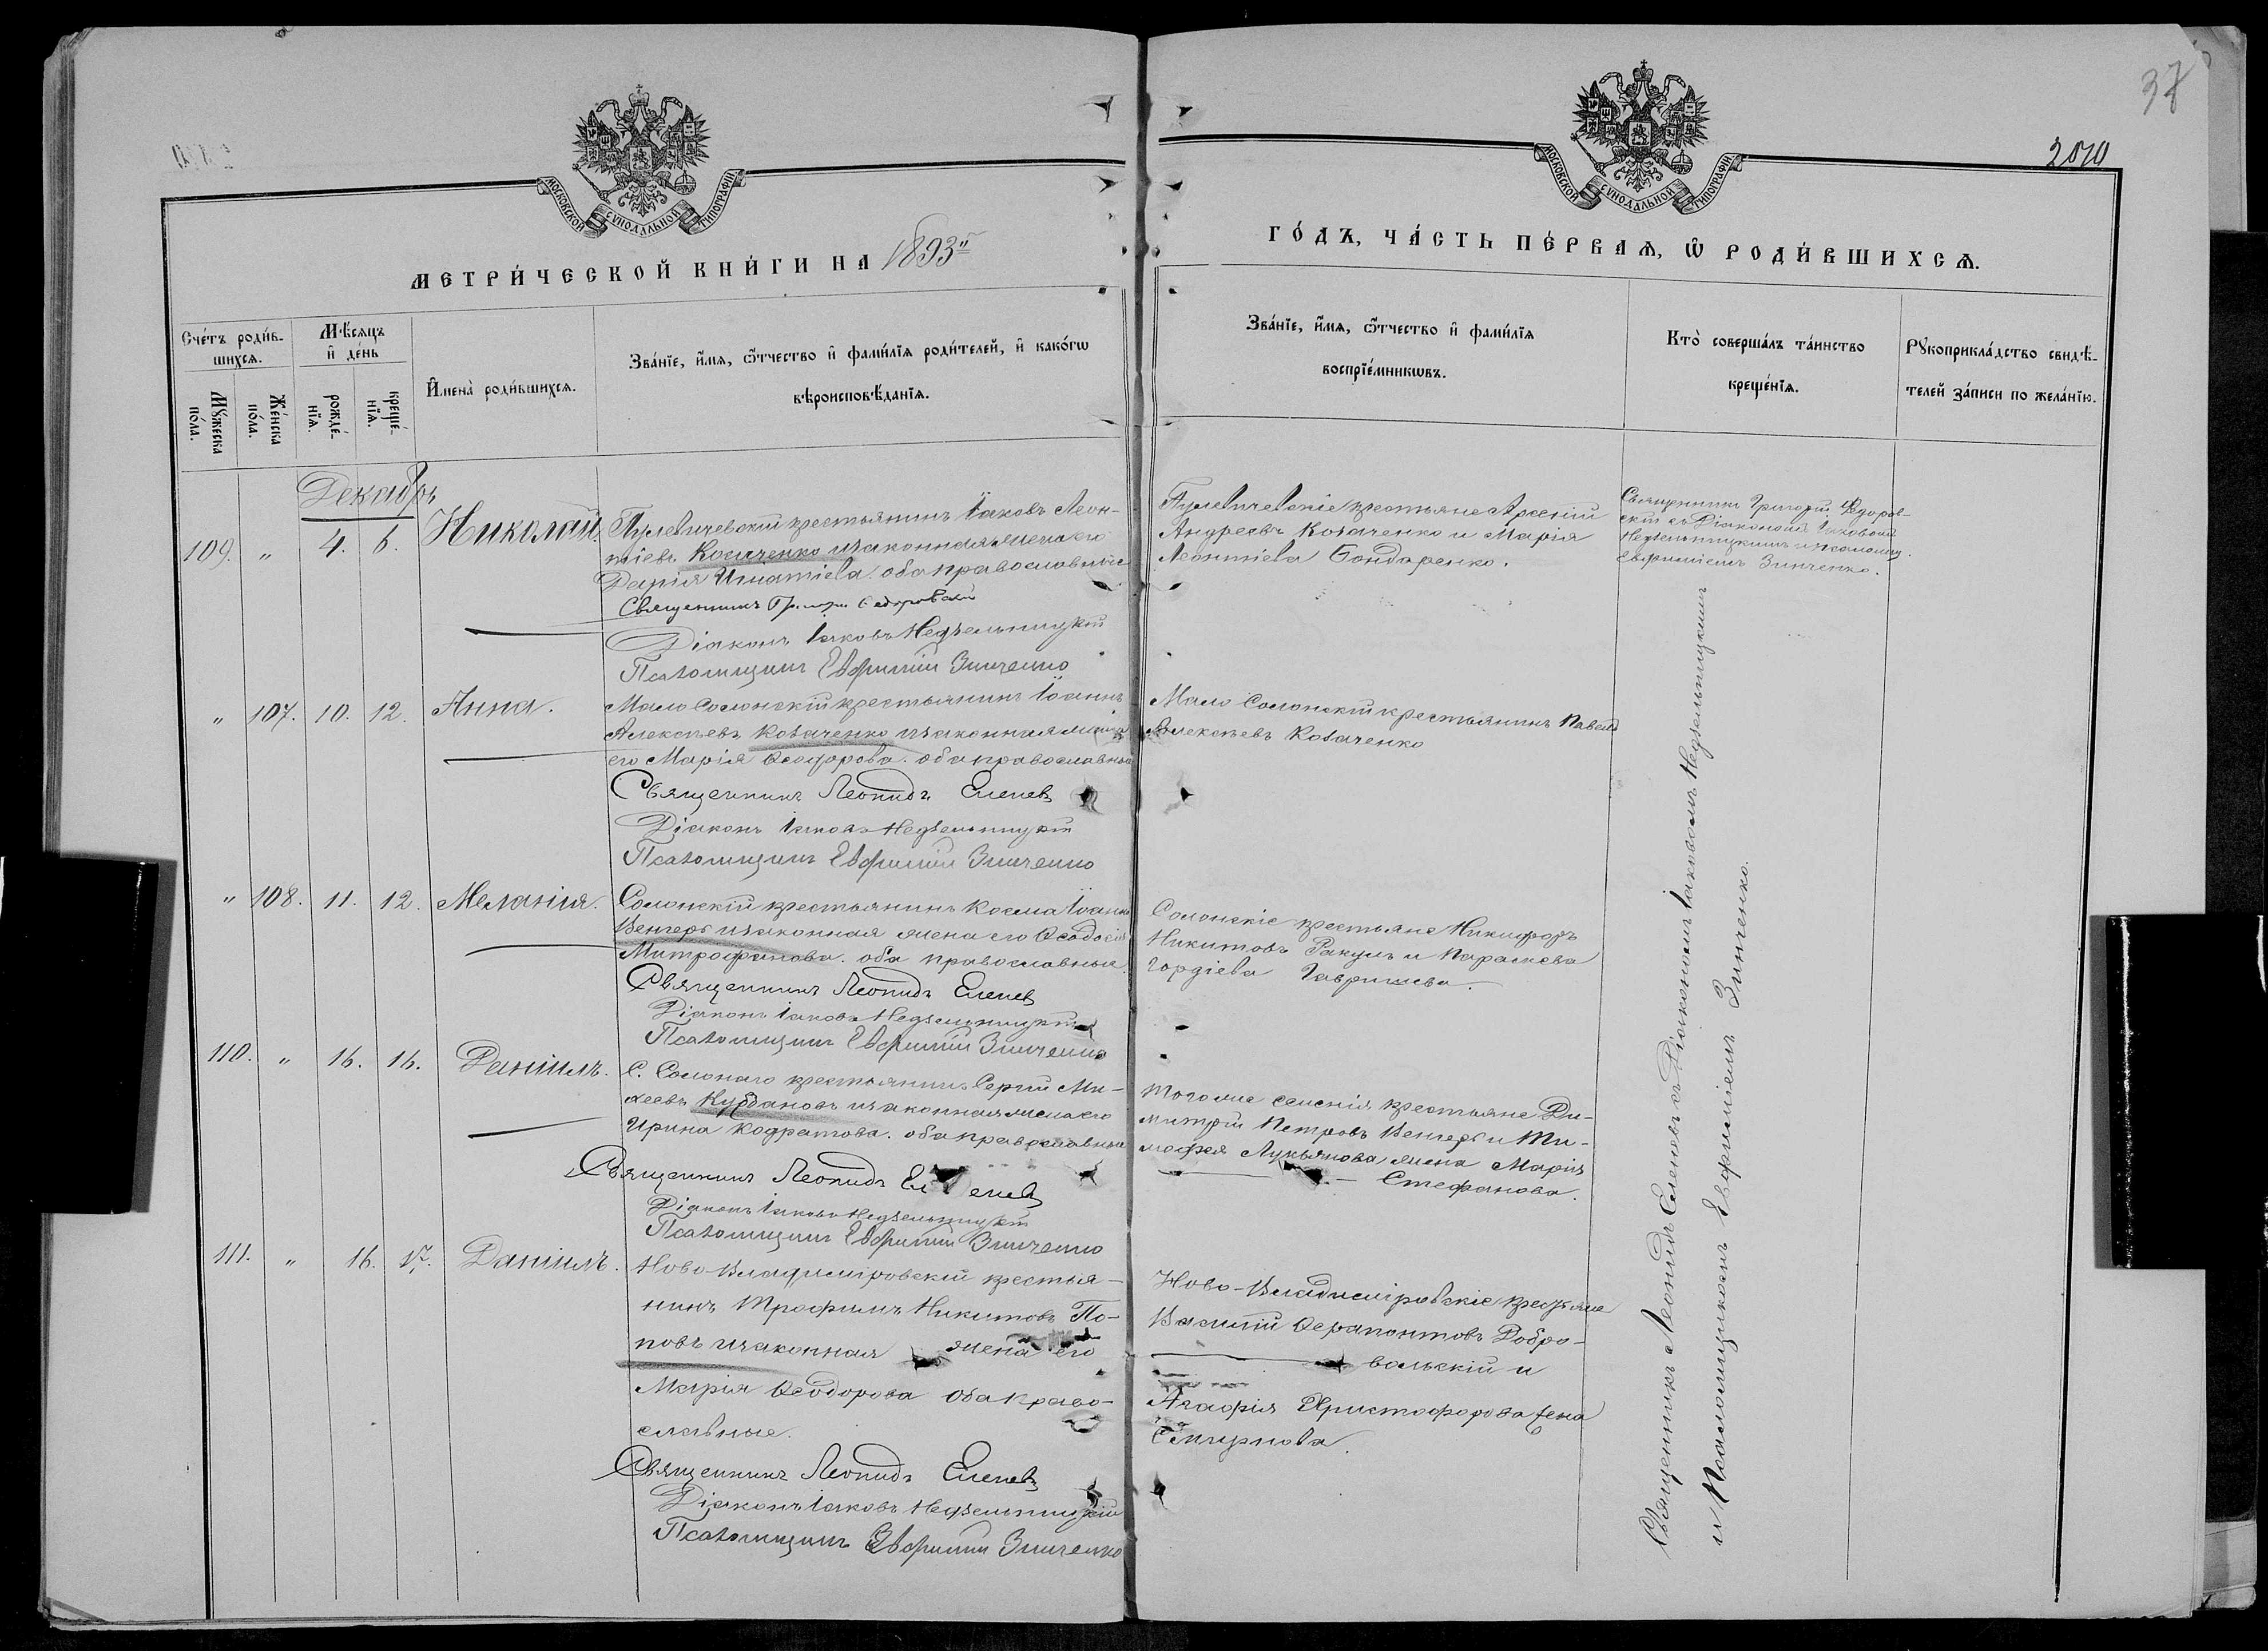 37
2010
МОСКОВСКОЙ СУНОДАЛЬНОЙ ТИПОГРАФІИ
МОСКОВСКОЙ СУНОДАЛЬНОЙ ТИПОГРАФІИ
МЕТРИ́ЧЕСКОЙ КНИ́ГИ НА 1893
ГО́ДЪ, ЧА́СТЬ ПЕ́РВАѦ, Ѡ РОДИ́ВШИХСѦ.
Сче́тъ роди́в-
шихсѧ.
Мꙋ́жеска
по́ла.
Же́нска
по́ла.
Мѣ́сяцъ
и҆ де́нь
рожде́-
нїѧ.
креще́-
нїѧ.
И҆мена̀ роди́вшихсѧ.
Зва́нїе, и҆́мѧ, ѻ҆́тчество и҆ фами́лїѧ роди́телей, и҆ како́гѡ
вѣроисповѣ́данїѧ.
Зва́нїе, и҆́мѧ, ѻ҆́тчество и҆ фами́лїѧ
воспрїе́мникѡвъ.
Кто̀ соверша́лъ та́инство
креще́нїѧ.
Рꙋкоприкла́дство свидѣ́-
телей за́писи по жела́нїю.
Декабрь
109. " 4. 6. Николай
Пулевичевскій крестьянинъ Іаковъ Леон-
тіевъ Косаченко и законная жена его
Дарія Игнатіева. оба православные
Священникъ Григорій Федоровскій
Діаконъ Іаковъ Недзельницкій
Псаломщикъ Евфимій Зинченко
Пулевичевскіе крестьяне Арсеній
Андреевъ Козаченко и Марія
Леонтіева Бондаренко.
Священникъ Григорій Федоров-
скій съ Діакономъ Іаковомъ
Недзельницкимъ и псаломщ.
Евфиміемъ Зинченко.
" 107. 10. 12. Анна.
Мало Солонскій крестьянинъ Іоаннъ
Алексѣевъ Козаченко и законная жена
его Марія Ѳеодорова. оба православные
Священникъ Леонидъ Еленевъ
Діаконъ Іаковъ Недзельницкій
Псаломщикъ Евфимій Зинченко
Мало Солонскій крестьянинъ Павелъ
Алексѣевъ Козаченко
" 108. 11. 12. Меланія.
Солонскій крестьянинъ Косма Іоанновъ
Венгеръ и законная жена его Ѳеодосія
Митрофанова. оба православные.
Священникъ Леонидъ Еленевъ
Діаконъ Іаковъ Недзельницкій
Псаломщикъ Евфимій Зинченко
Солонскіе крестьяне Никифоръ
Никитовъ Ракулъ и Параскева
Гордіева Гавришева.
110. " 16. 16. Даніилъ.
С. Солонаго крестьянинъ Сергій Ми-
хеевъ Курбановъ и законная жена его
Ирина Кодратова. оба православные
Священникъ Леонидъ Еленевъ
Діаконъ Іаковъ Недзельницкій
Псаломщикъ Евфимій Зинченко
Того же селенія крестьяне Ди-
митрій Петровъ Венгеръ и Ти-
мофея Лукьянова жена Марія
Стефанова.
111. " 16. 17. Даніилъ.
Ново-Владиміровскій крестья-
нинъ Трофимъ Никитовъ По-
повъ и законная жена его
Марія Ѳеодорова оба право-
славные.
Священникъ Леонидъ Еленевъ
Діаконъ Іаковъ Недзельницкій
Псаломщикъ Евфимій Зинченко
Ново-Владиміровскіе крестьяне
Василій Ѳерапонтовъ Добро-
вольскій и
Агафія Христофорова жена
Смирнова.
Священникъ Леонидъ Еленевъ съ Діакономъ Іаковомъ Недзельницкимъ
и Псаломщикомъ Евфиміемъ Зинченко.